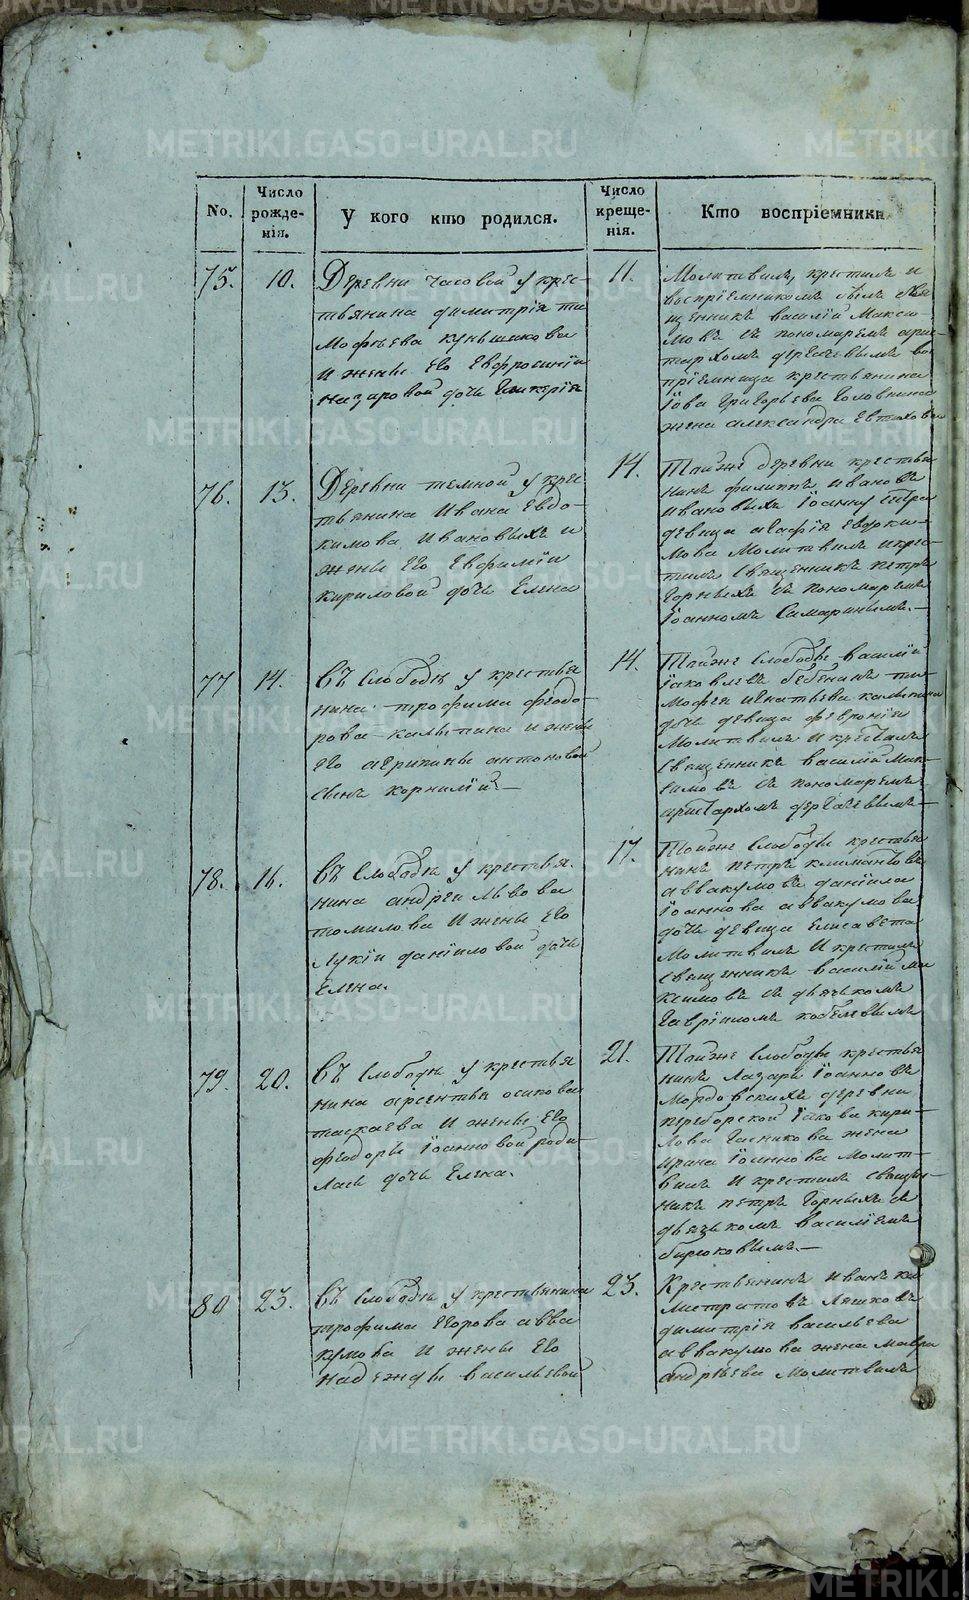 No.
Число
рожде-
нія.
У кого кто родился.
Число
креще-
нія.
Кто воспріемники.
75.
10.
Деревни Часовой у крес-
тьянина Димитрія Ти
мофѣева Куньщикова
и жены его Евфросиніи
Назаровой дочь Гликерія
11.
Молитвилъ, крестилъ и
воспріемникомъ былъ Свя
щенникъ Василій Макси-
мовъ съ пономаремъ Арис
тархомъ Дергачевымъ во
пріемница крестьянина
Іова Григорьева Головнина
жена Александра Евтихова
76.
13.
Деревни Темной у крес
тьянина Ивана Евдо-
кимова Ивановыхъ и
жены его Евфиміи
Кириловой дочь Елена
14.
Тойже деревни крестья
нинъ Филиппъ Ивановъ
Ивановыхъ Іоанну
девица Агафія Евдоки-
мова Молитвилъ и крес
тилъ Священникъ Петръ
Горныхъ съ пономаремъ
Іоанномъ Самаринымъ.—
77
14.
Въ Слободѣ у крестья
нина Трофима Феодо-
рова Калыпина и жены
его Агрипины Антоновой
сынъ Корнилій.—
14.
Тойже Слободы Василій
Іаковлевъ Бебенинъ Ти
мофея Игнатьева Калыпина
дочь девица Февронія
Молитвилъ и крестилъ
Священникъ Василій Мак-
симовъ съ пономаремъ
Аристархомъ Дергачевымъ.—
78.
16.
Въ Слободѣ у крестья.
нина Андрея Львова
Томилова и жены его
Лукіи Даніиловой дочь
Елена.
17.
Тойже Слободы крестья
нинъ Петръ Климантовъ
Аввакумовъ Даніила
Іоаннова Аввакумова
дочь девица Елисавета
Молитвилъ и крестилъ
Священникъ Василій Ма
ксимовъ съ дьячкомъ
Гавріиломъ Кобелевымъ
79.
20.
Въ Слободѣ у крестья
нина Арсентья Осипова
Таскаева и жены его
Феодоры Іоанновой роди-
лась дочь Елена.
21.
Тойже Слободы крестья
нинъ Лазарь Іоанновъ
Мордовскихъ деревни
Переборской Іакова Кири-
лова Гасникова жена
Ирина Іоаннова Молит-
вилъ и крестилъ Священ-
никъ Петръ Горныхъ съ
дьячкомъ Василіемъ
Бирюковымъ.—
80
23.
Въ Слободѣ у крестьянина
Трофима Егорова Авва
кумова и жены его
Надежды Васильевой
23.
Крестьянинъ Иванъ Ка
листратовъ Ляшковъ
Димитрія Васильева
Аввакумова жена Мавра
Андрѣева Молитвилъ
METRIKI.GASO-URAL.RU